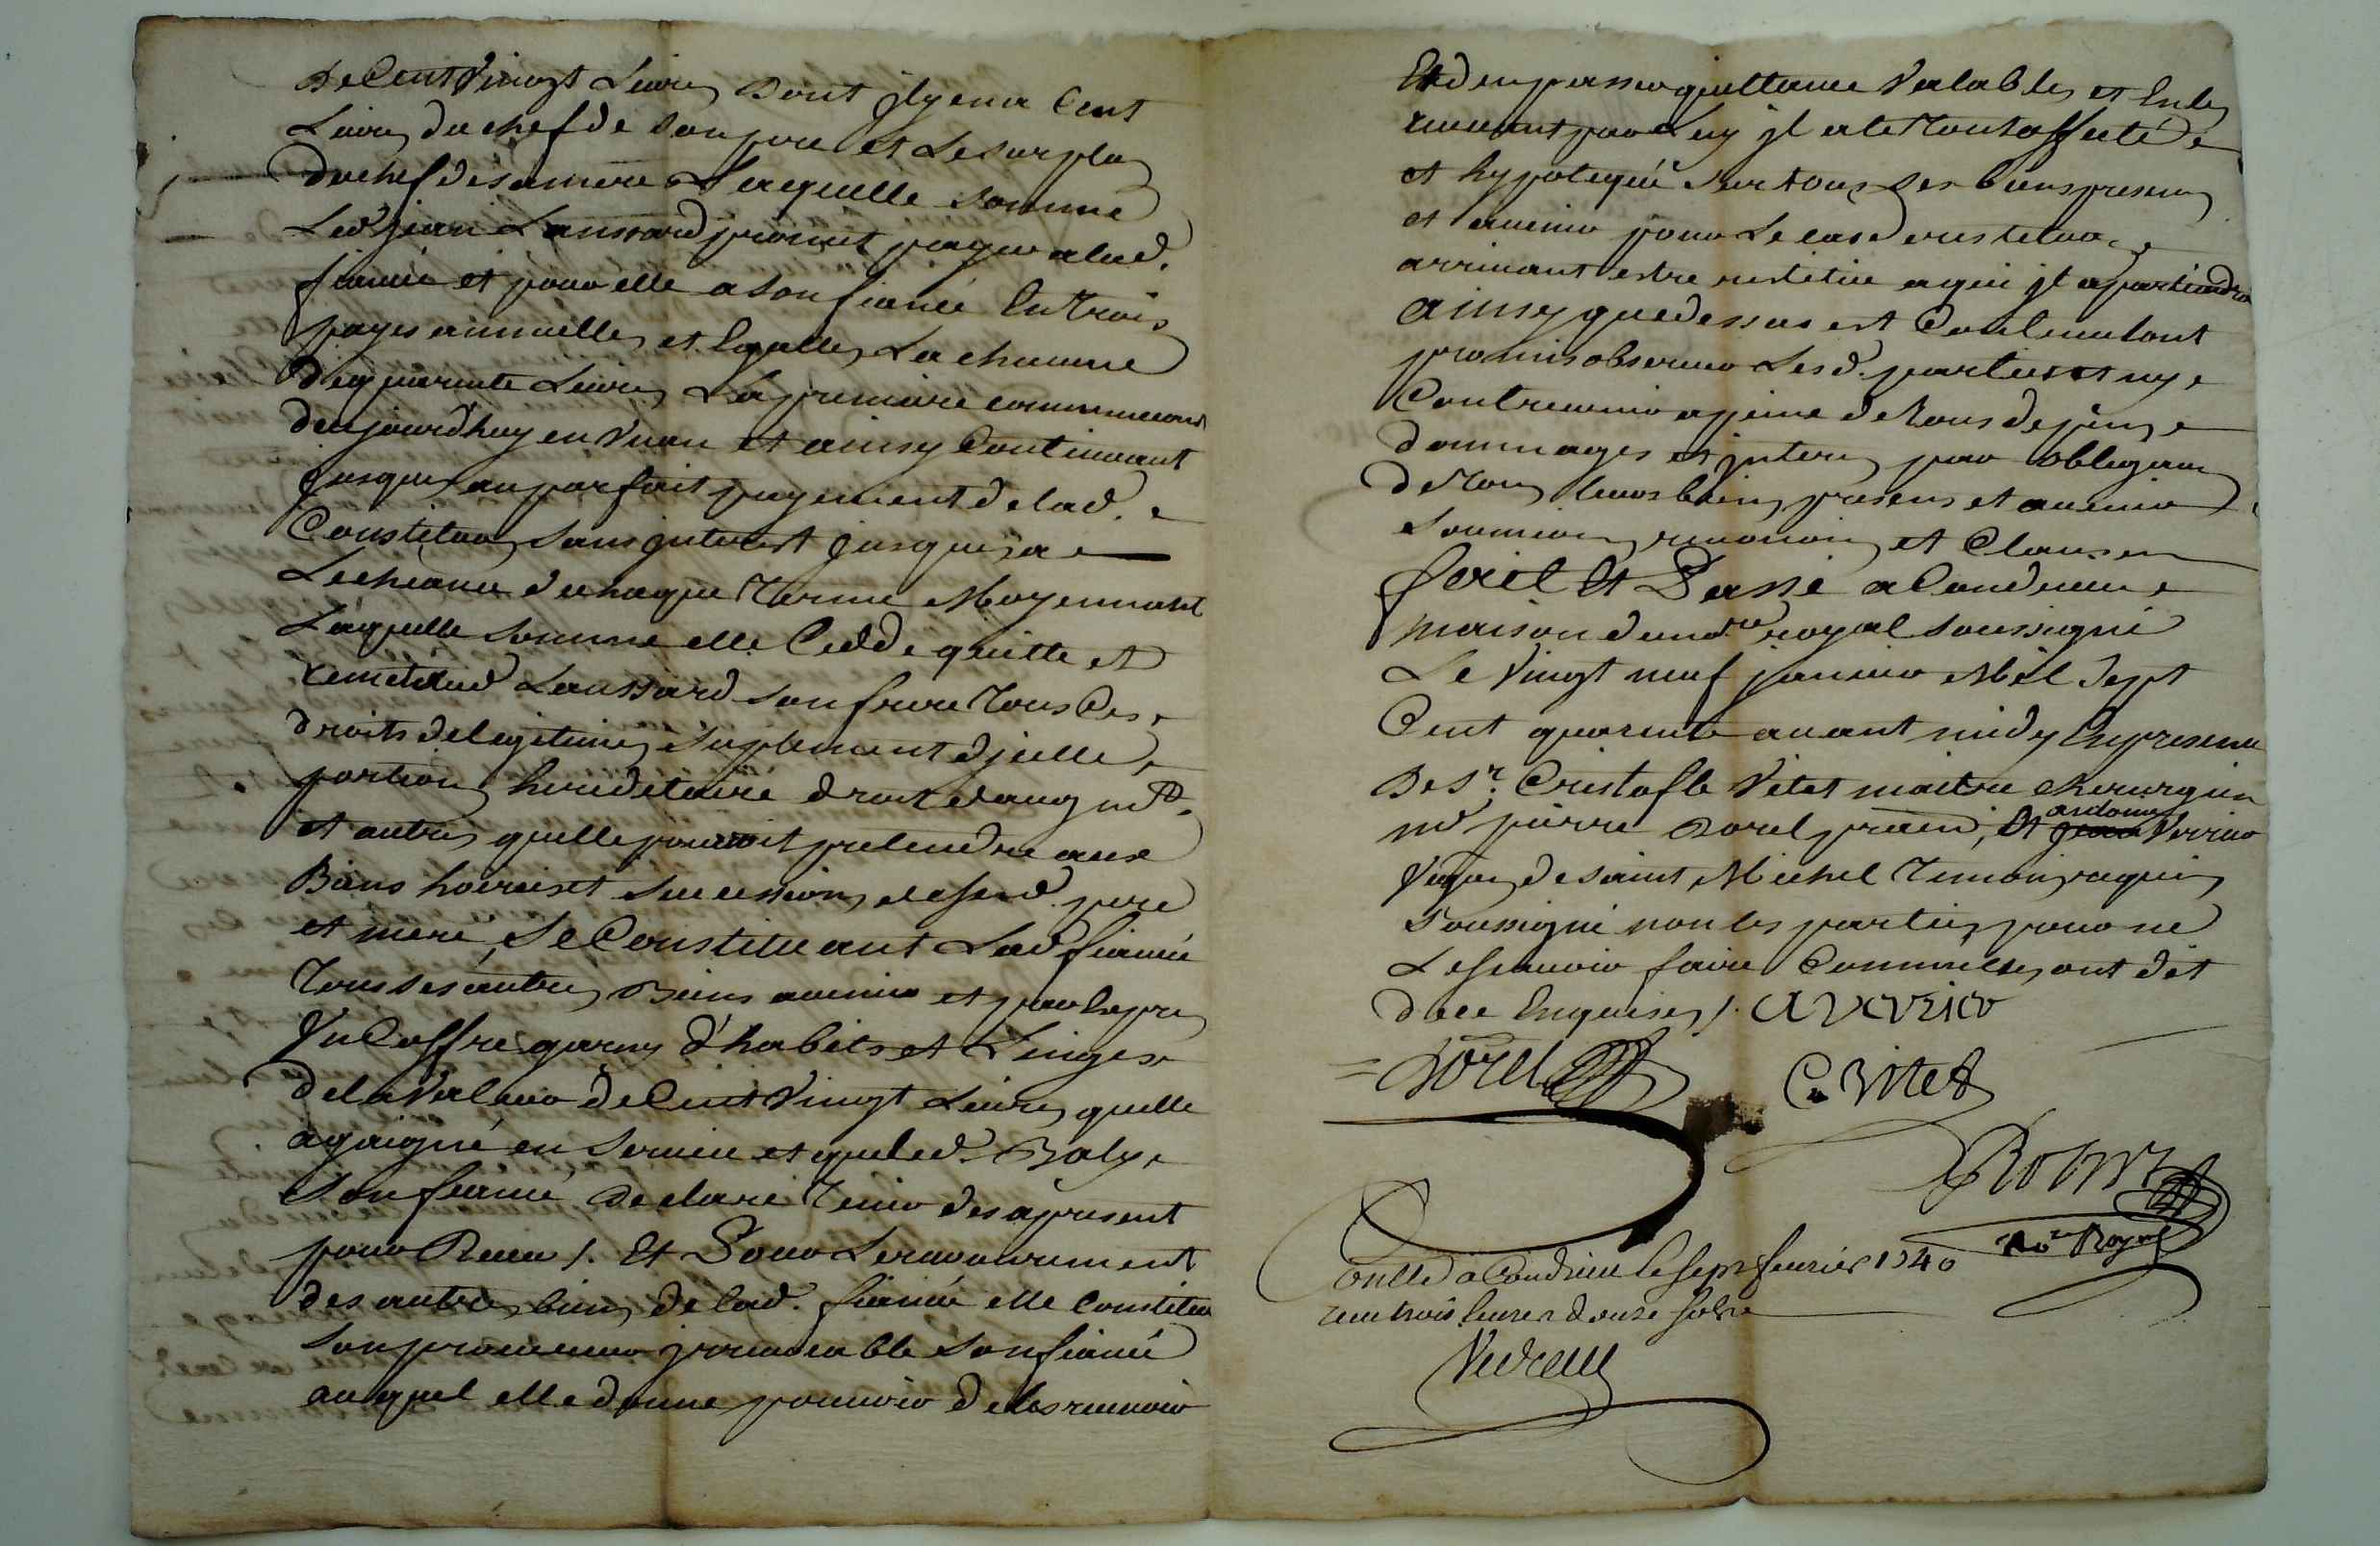 De Cent Vingt Livres Dont jl y en a Cent
Livres du chef de son pere et Le surplus
du chef de sa mere Laquelle somme
Led. jean Laussard promet payer a lad.
fiancée et pour elle a son fiancé En Trois
payes annuelles et Egalles La chacune
de quarente Livres La premiere commenceant
daujourdhuy en Vn an et ainsy Continuant
jusques au parfait payement de lad.
Constitution sans jnterest jusques a
Lecheance de chaque Terme Moyennant
Laquelle somme elle Cedde quitte et
remet aud Laussard son frere Tous Ces
droits de legitime, suplement djcelle,
portion hereditaire droit daugm.
et autres quelle pouroit pretendre aux
Biens hoirie et succession desd. pere
et mere, Se Constituant Lad fiancée
Tous ses autres Biens avenir et par Exprés
Vn Coffre garny d'habits et Linges
de la Valeur de Cent Vingt Livres quelle
a gaigné en service et que led. Baly
son fiancé declare Tenir des apresent
pour Receu /. Et Pour Le recouvrement
des autres biens de lad. fiancée elle Constitue
son procureur jrrevocable son fiancé
auquel elle donne pouvoir de les recevoir
Et den passer quittance Valables et En les
recevant par Luy jl a le Tout affecté
et hypotequé sur tous ses biens presens
et avenir pour Le cas de restitution
arrivant estre restitué a qui jl apartiendra
Ainsy que dessus est Contenu tout
promis observer Lesd. parties et ny
Contrevenir a peine de Tous depens
dommages et jnterests par obligation
de Tous leurs biens presens et avenir
soumissions renonciations et Clauses
fait Et Passé a Condrieu
maison du no.re royal soussigné
Le Vingt neuf janvier Mil Sept
Cent quarente avant midy En presence
De S.r Cristofle Vitet maitre chirurgien
m.e pierre Borel praticien, Et antoine Verrier
de saint Michel Temoins requis
Soussigné non les parties pour ne
Le sçavoir faire Comme elles ont dit
de ce Enquises /. A Verrier
Borel
C. Vitet
No.re Royal
Conllé a Condrieu le sept fevrier 1740
receu trois livres douze sols